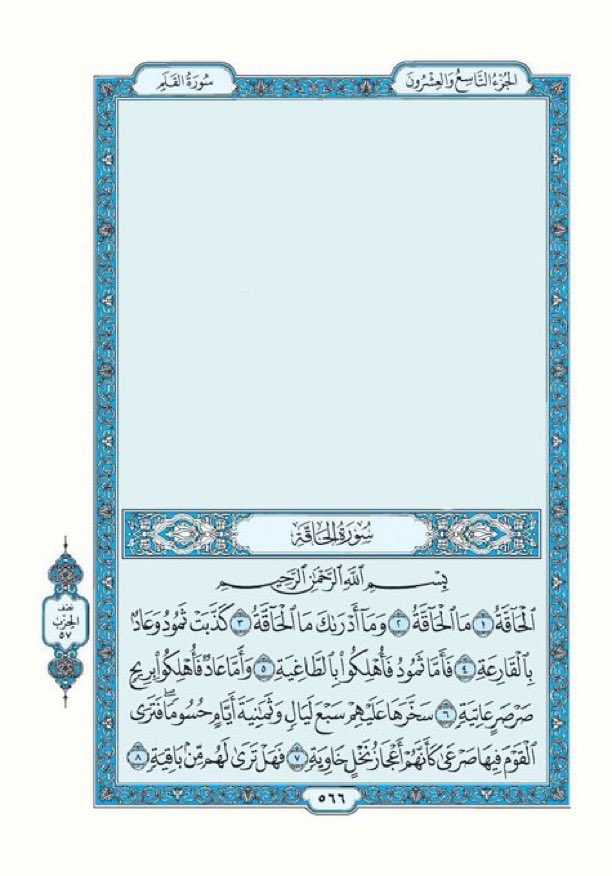 الجُزْءُ التَّاسِعُ وَالعِشْرُونَ
سُورَةُ القَلَمِ
سُورَةُ الحَاقَّةِ
بِسْمِ ٱللَّهِ ٱلرَّحْمَٰنِ ٱلرَّحِيمِ
ٱلْحَآقَّةُ ١ مَا ٱلْحَآقَّةُ ٢ وَمَآ أَدْرَىٰكَ مَا ٱلْحَآقَّةُ ٣ كَذَّبَتْ ثَمُودُ وَعَادٌۢ
بِٱلْقَارِعَةِ ٤ فَأَمَّا ثَمُودُ فَأُهْلِكُوا۟ بِٱلطَّاغِيَةِ ٥ وَأَمَّا عَادٌ فَأُهْلِكُوا۟ بِرِيحٍ
صَرْصَرٍ عَاتِيَةٍ ٦ سَخَّرَهَا عَلَيْهِمْ سَبْعَ لَيَالٍ وَثَمَٰنِيَةَ أَيَّامٍ حُسُومًا ۖ فَتَرَى
ٱلْقَوْمَ فِيهَا صَرْعَىٰ كَأَنَّهُمْ أَعْجَازُ نَخْلٍ خَاوِيَةٍ ٧ فَهَلْ تَرَىٰ لَهُم مِّنۢ بَاقِيَةٍ ٨
نصف
الحزب
٥٧
٥٦٦